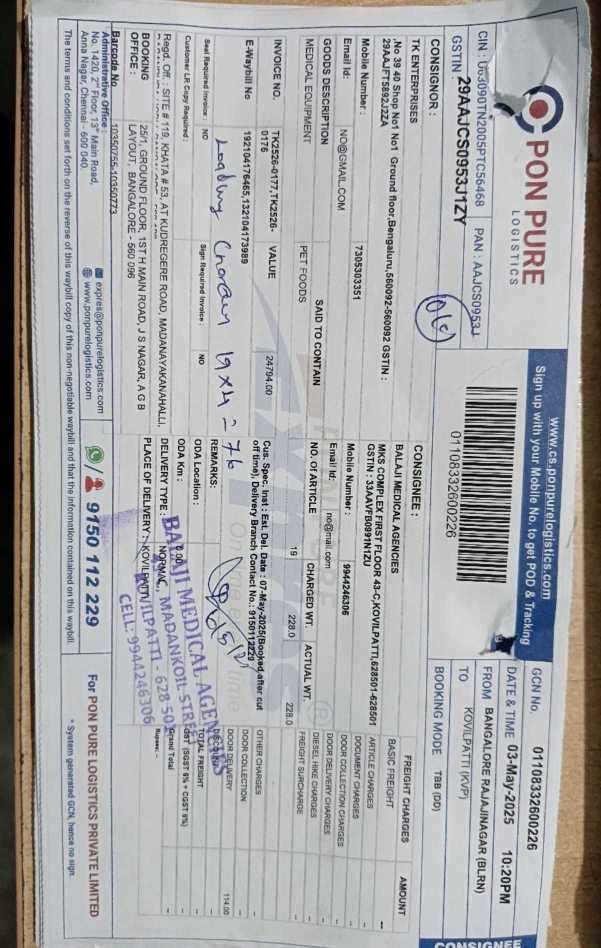 PON PURE
LOGISTICS
www.cs.ponpurelogistics.com
Sign up with your Mobile No. to get POD & Tracking
CIN : U63090TN2005PTC56468 PAN : AAJCS0953J
GSTIN 29AAJCS0953J1ZY
01108332600226
GCN No. 01108332600226
DATE & TIME 03-May-2025 10:20PM
FROM BANGALORE RAJAJINAGAR (BLRN)
TO KOVILPATTI (KVP)
BOOKING MODE TBB (DD)
CONSIGNEE
CONSIGNOR :
TK ENTERPRISES
,No 39 40 Shop No1 No1 Ground floor,Bengaluru,560092-560092 GSTIN :
29AAJFT5892J2ZA
Mobile Number : 7305303351
Email Id: NO@GMAIL.COM
CONSIGNEE :
BALAJI MEDICAL AGENCIES
MKS COMPLEX FIRST FLOOR 43-C,KOVILPATTI,628501-628501
GSTIN : 33AAVFB0991N1ZU
Mobile Number : 9944246306
Email Id: no@mail.com
GOODS DESCRIPTION SAID TO CONTAIN NO. OF ARTICLE CHARGED WT. ACTUAL WT.
MEDICAL EQUIPMENT PET FOODS 19 228.0 228.0
INVOICE NO. TK2526-0177,TK2526-0176 VALUE 24794.00
E-Waybill No 192104176465,132104173989
Cus. Spec. Inst : Est. Del. Date : 07-May-2025(Booked after cut off time), Delivery Branch Contact No.: 9150112229
Seal Required Invoice : NO Sign Required Invoice : NO
Customer LR Copy Required :
Loading Charge 19x4 = 76
REMARKS:
ODA Location :
ODA Km : 0.00
DELIVERY TYPE : NORMAL
PLACE OF DELIVERY : KOVILPATTI
BALAJI MEDICAL AGENCIES
MADANKOIL STREET
KOVILPATTI - 628 501
CELL: 9944246306
FREIGHT CHARGES AMOUNT
BASIC FREIGHT --
ARTICLE CHARGES --
DOCUMENT CHARGES --
DOOR COLLECTION CHARGES --
DOOR DELIVERY CHARGES --
DIESEL HIKE CHARGES --
FREIGHT SURCHARGE --
OTHER CHARGES --
DOOR COLLECTION --
DOOR DELIVERY 114.00
TOTAL FREIGHT --
GST (SGST 6% + CGST 6%) --
Grand Total --
Rupees: --
Regd. Off. : SITE # 119, KHATA # 53, AT KUDREGERE ROAD, MADANAYAKANAHALLI,
BOOKING OFFICE : 25/1, GROUND FLOOR, 1ST H MAIN ROAD, J S NAGAR, A G B LAYOUT, BANGALORE - 560 096
Barcode No 10350755-10350773
Administrative Office :
No. 1420, 2nd Floor, 13th Main Road,
Anna Nagar, Chennai - 600 040.
expres@ponpurelogistics.com
www.ponpurelogistics.com
9150 112 229
For PON PURE LOGISTICS PRIVATE LIMITED
* System generated GCN, hence no sign.
The terms and conditions set forth on the reverse of this waybill copy of this non-negotiable waybill and that the information contained on this waybill.